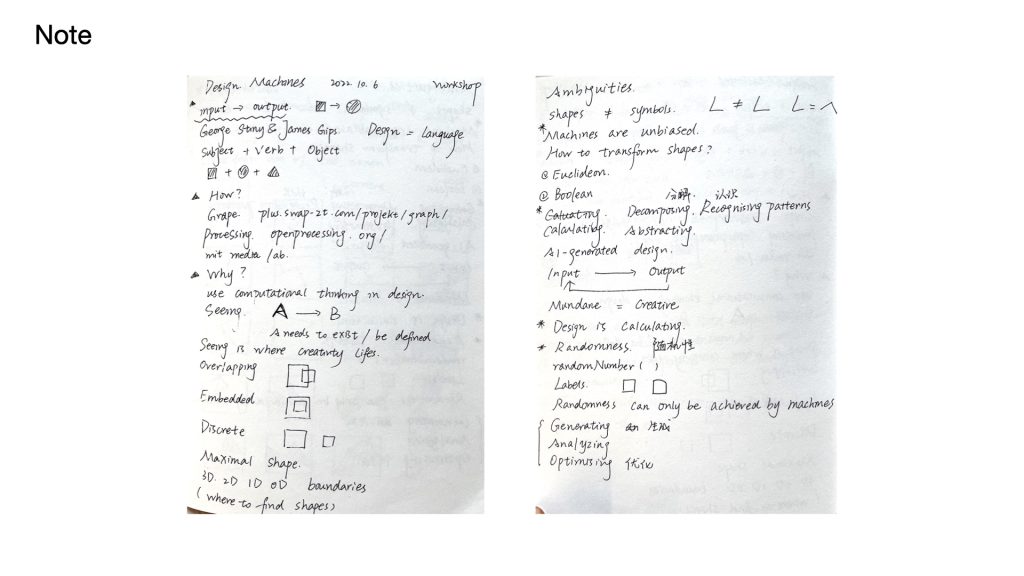 Note
Design Machines 2022.10.6 workshop
input → output. → 
George Stiny & James Gips. Design = Language
Subject + Verb + Object
+ +
▲ How?
Grape. plus.swap-zt.com/projekt/graph/
Processing. openprocessing.org/
mit media lab.
▲ Why?
use computational thinking in design.
Seeing. A → B
A needs to exist / be defined
Seeing is where creativity lifes.
Overlapping
Embedded
Discrete
Maximal shape.
3D. 2D 1D 0D boundaries
(where to find shapes)
Ambiguities.
shapes ≠ symbols. L ≠ L L =
* Machines are unbiased.
How to transform shapes?
@ Euclideon.
@ Boolean 分解. 认识
* Caluating. Decomposing. Recognising patterns
Calculating. Abstracting.
AI-generated design.
Input → Output
Mundane = Creative
* Design is Calculating.
* Randomness. 随机性
randomNumber ( )
Labels.
Randomness can only be achieved by machines
Generating 生成
Analyzing
Optimising 优化